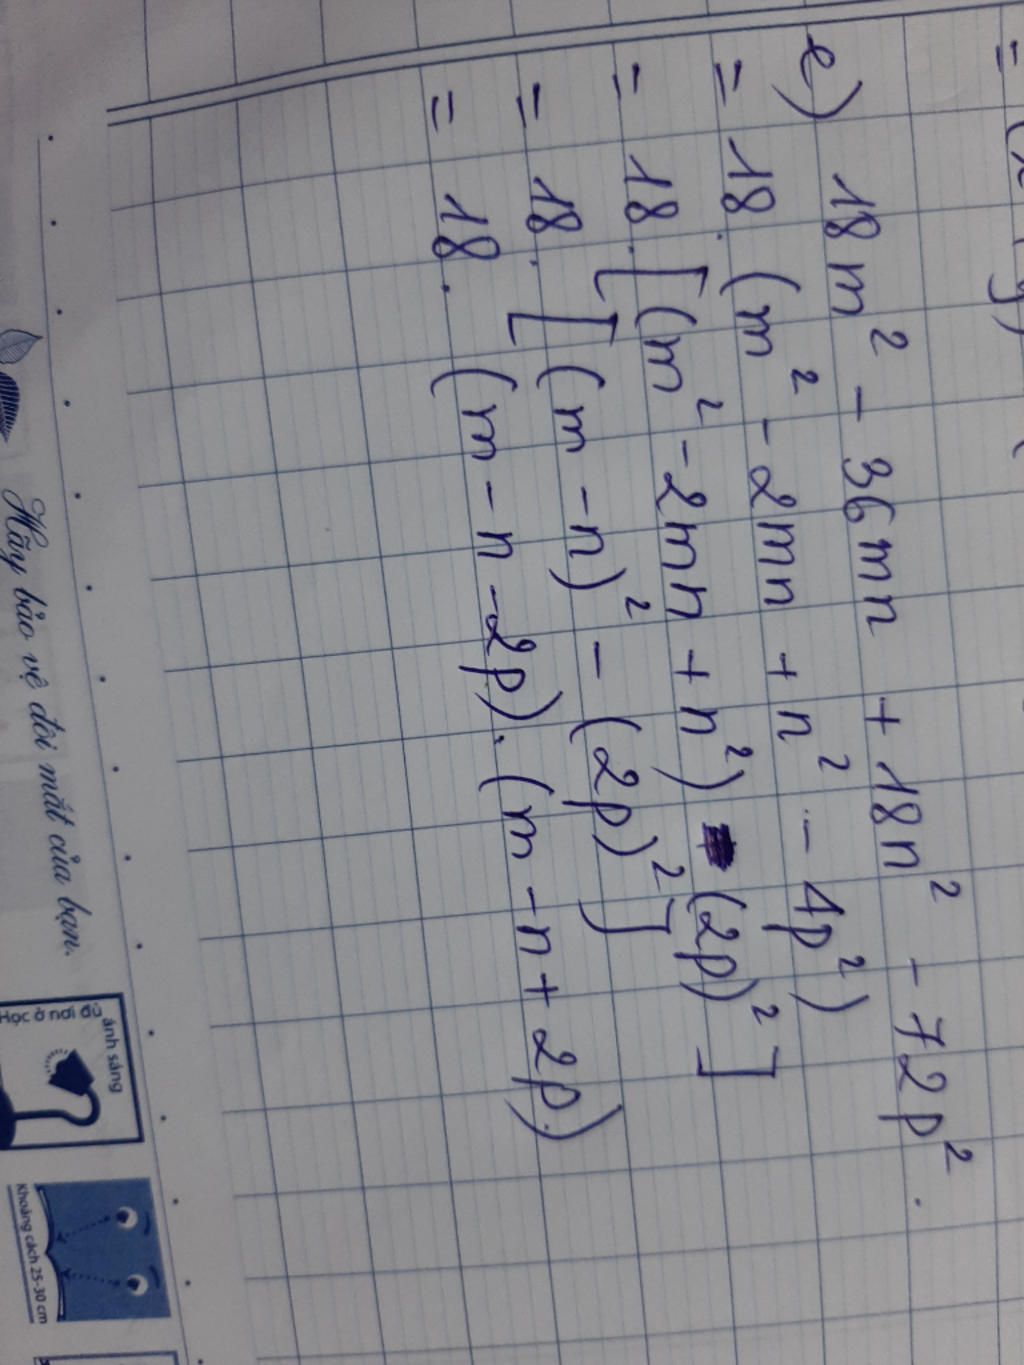 e) 18m² - 36mn + 18n² - 72p².
= 18. (m² - 2mn + n² - 4p²)
= 18. [(m² - 2mn + n²) - (2p)²]
= 18. [(m - n)² - (2p)²]
= 18. (m - n - 2p). (m - n + 2p)
Hãy bảo vệ đôi mắt của bạn.
Học ở nơi đủ
ánh sáng
Khoảng cách 25-30 cm